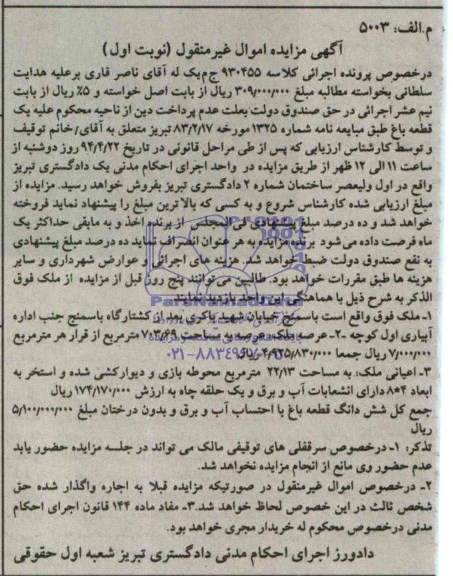 م.الف: ۵۰۰۳
آگهی مزایده اموال غیرمنقول (نوبت اول)
درخصوص پرونده اجرائی کلاسه ۹۳۰۴۵۵ ج‌م‌یک له آقای ناصر قاری برعلیه هدایت
سلطانی بخواسته مطالبه مبلغ ۳۰۹/۰۰۰/۰۰۰ ریال از بابت اصل خواسته و ۵٪ ریال از بابت
نیم عشر اجرائی در حق صندوق دولت بعلت عدم پرداخت دین از ناحیه محکوم علیه یک
قطعه باغ طبق مبایعه نامه شماره ۱۳۲۵ مورخه ۸۳/۲/۱۷ تبریز متعلق به آقای/خانم توقیف
و توسط کارشناس ارزیابی که پس از طی مراحل قانونی در تاریخ ۹۴/۴/۲۲ روز دوشنبه از
ساعت ۱۱ الی ۱۲ ظهر از طریق مزایده در واحد اجرای احکام مدنی یک دادگستری تبریز
واقع در اول ولیعصر ساختمان شماره ۲ دادگستری تبریز بفروش خواهد رسید. مزایده از
مبلغ ارزیابی شده کارشناس شروع و به کسی که بالاترین مبلغ را پیشنهاد نماید فروخته
خواهد شد و ده درصد مبلغ پیشنهادی فی المجلس از برنده اخذ و به مابقی حداکثر یک
ماه فرصت داده می شود برنده مزایده به هر عنوان انصراف نماید ده درصد مبلغ پیشنهادی
به نفع صندوق دولت ضبط خواهد شد. هزینه های اجرائی و عوارض شهرداری و سایر
هزینه ها طبق مقررات خواهد بود. طالبین می توانند پنج روز قبل از مزایده از ملک فوق
الذکر به شرح ذیل با هماهنگی این واحد بازدید نمایند
۱- ملک فوق واقع است باسمنج خیابان شهید باکری بعد از کشتارگاه باسمنج جنب اداره
آبیاری اول کوچه ۲- عرصه ملک: عرصه به مساحت ۷۰۳/۶۹ مترمربع از قرار هر مترمربع
۷/۰۰۰/۰۰۰ ریال جمعا ۴/۹۲۵/۸۳۰/۰۰۰ ریال
۰۲۱-۸۸۳۴۹۶۷۰
۳- اعیانی ملک: به مساحت ۲۲/۱۳ مترمربع محوطه بازی و دیوارکشی شده و استخر به
ابعاد ۴*۸ دارای انشعابات آب و برق و یک حلقه چاه به ارزش ۱۷۴/۱۷۰/۰۰۰ ریال
جمع کل شش دانگ قطعه باغ با احتساب آب و برق و بدون درختان مبلغ ۵/۱۰۰/۰۰۰/۰۰۰
ریال
تذکر: ۱- درخصوص سرقفلی های توقیفی مالک می تواند در جلسه مزایده حضور یابد
عدم حضور وی مانع از انجام مزایده نخواهد شد.
۲- درخصوص اموال غیرمنقول در صورتیکه مزایده قبلا به اجاره واگذار شده حق
شخص ثالث در این خصوص لحاظ خواهد شد. ۳- مفاد ماده ۱۴۴ قانون اجرای احکام
مدنی درخصوص محکوم له خریدار مجری خواهد بود.
دادورز اجرای احکام مدنی دادگستری تبریز شعبه اول حقوقی